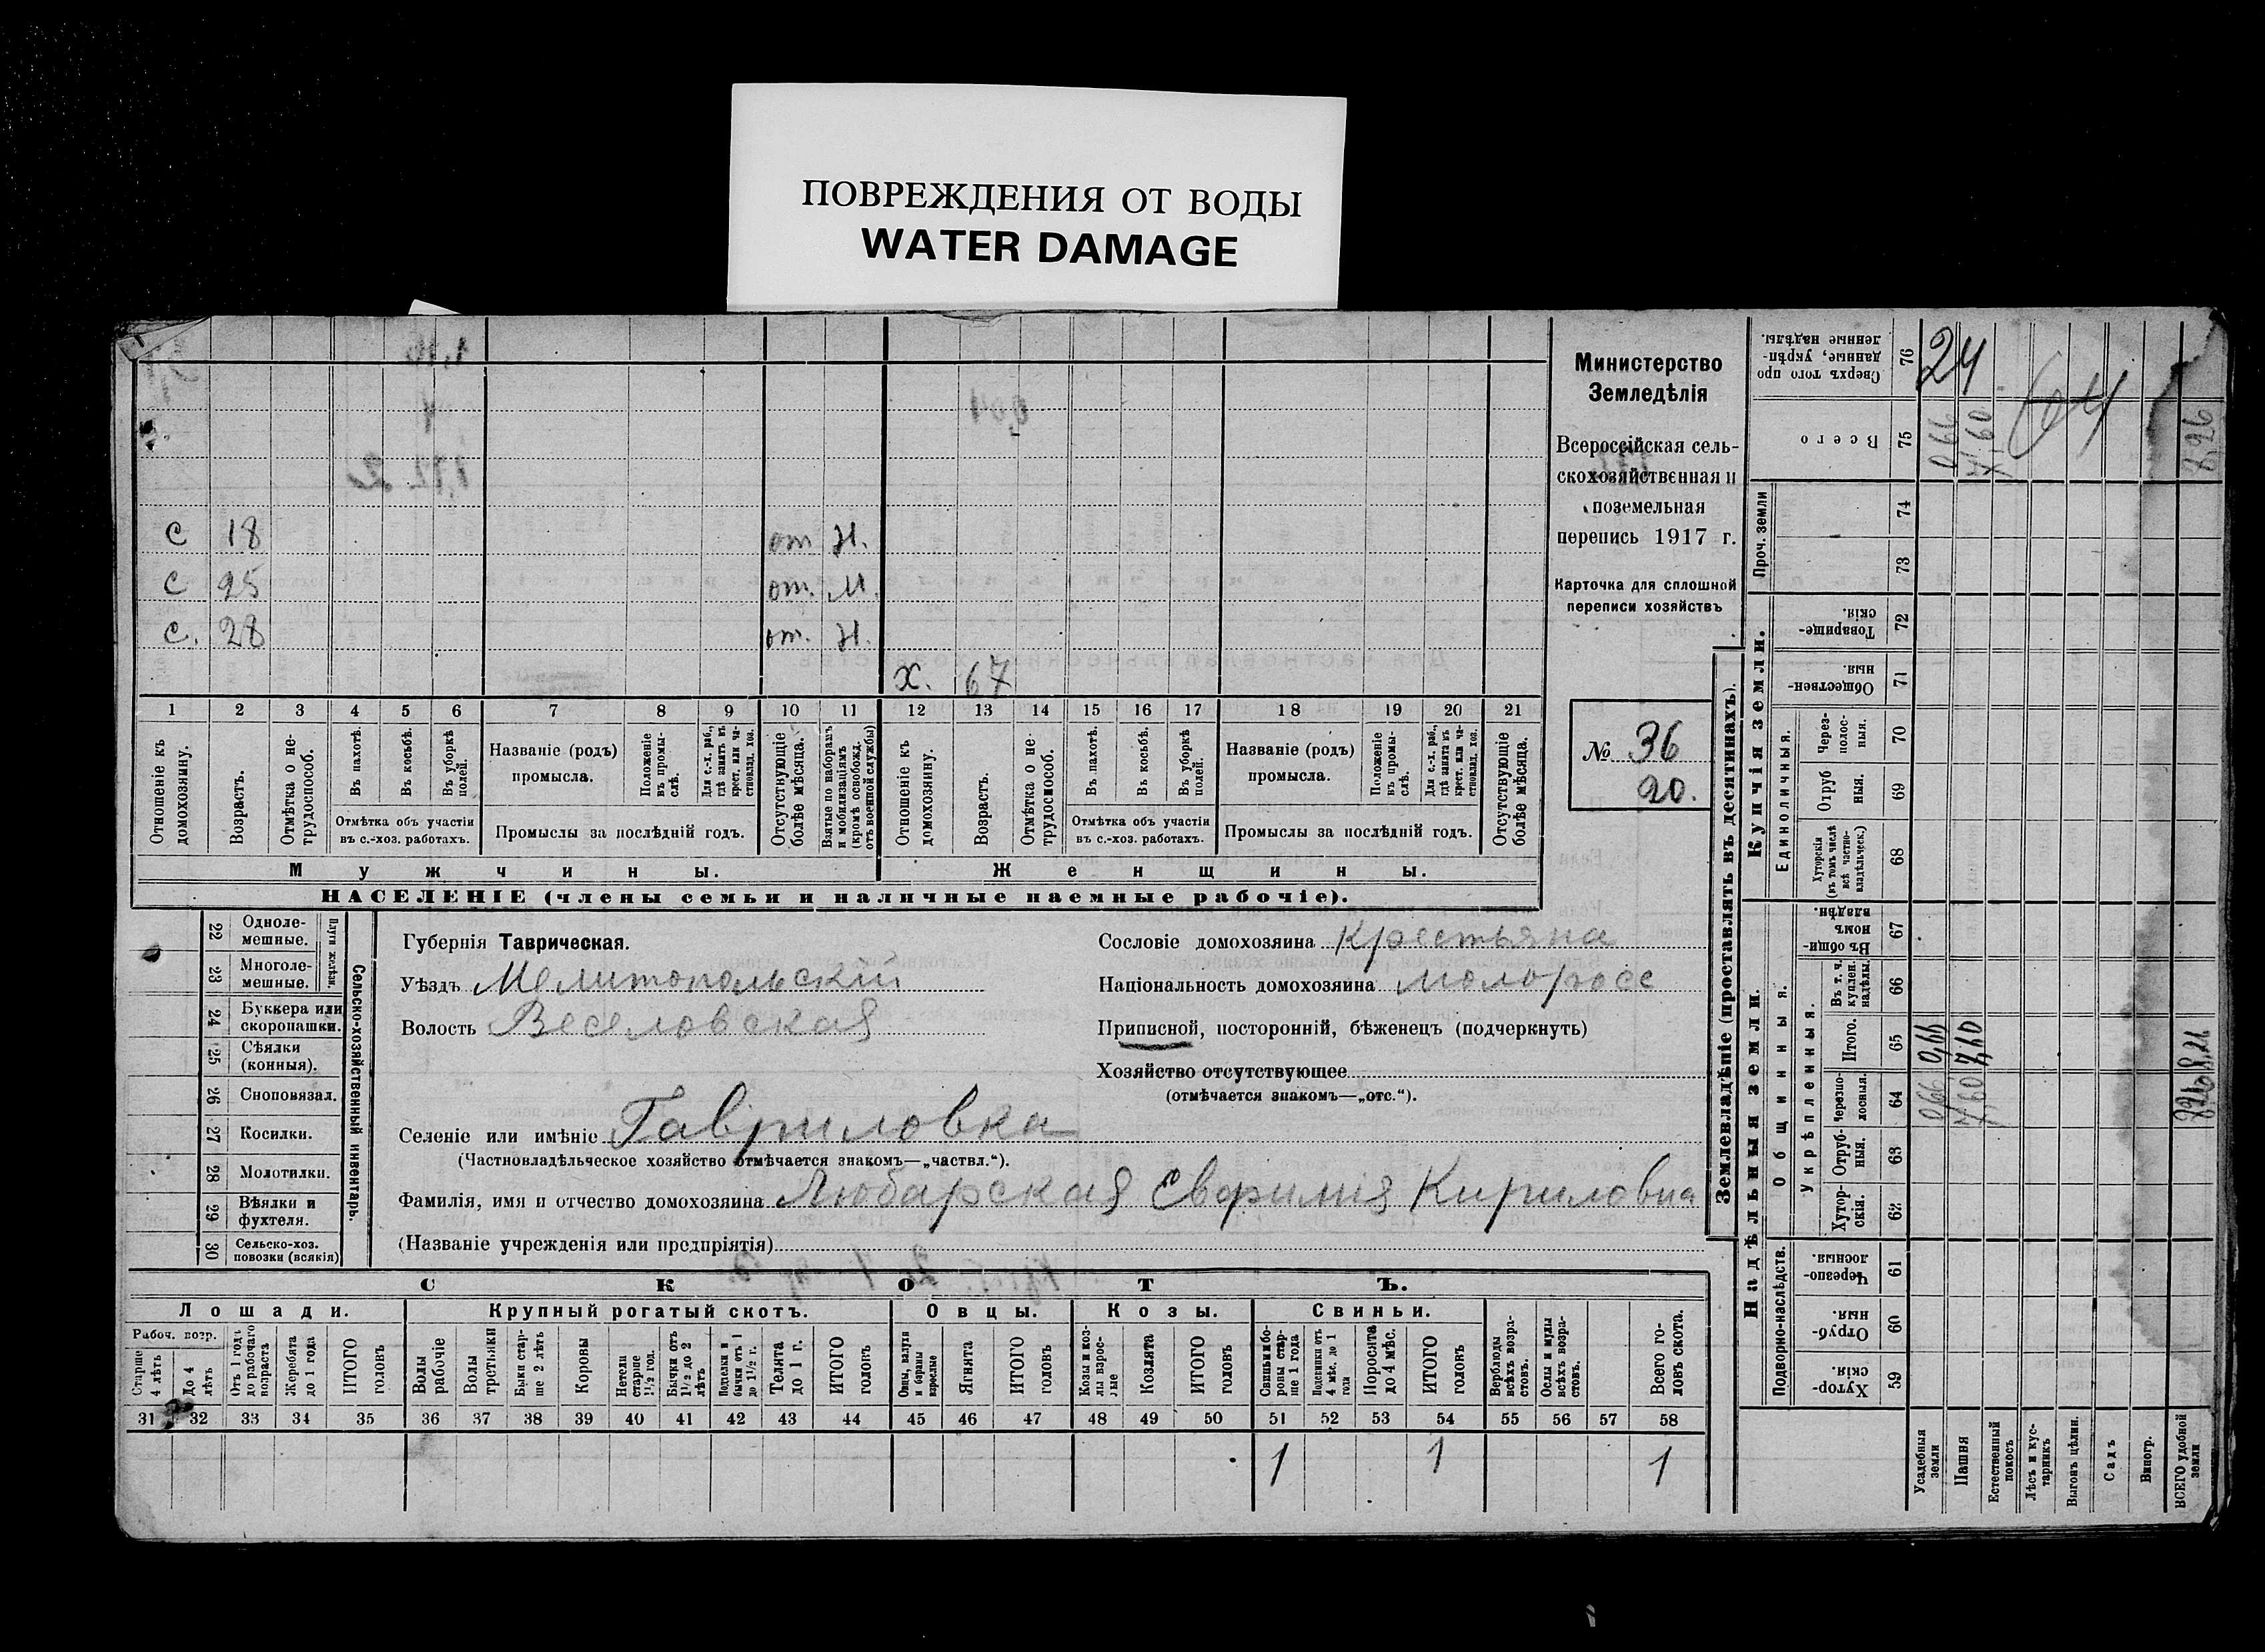 ПОВРЕЖДЕНИЯ ОТ ВОДЫ
WATER DAMAGE
С 18 от. Н.
С 25 от. Н.
С. 28 от. Н.
Х. 67
1 2 3 4 5 6 7 8 9 10 11 12 13 14 15 16 17 18 19 20 21
Отношеніе къ домохозяину.
Возрастъ.
Отмѣтка о не-трудоспособ.
Въ пахотѣ.
Въ косьбѣ.
Въ уборкѣ полей.
Отмѣтка объ участіи
въ с.-хоз. работахъ.
Названіе (родъ)
промысла.
Положеніе въ промы-слѣ.
Для с.-х. раб., гдѣ занятъ въ крест. или ча-стновлад. хоз.
Промыслы за послѣдній годъ.
Отсутствующіе болѣе мѣсяца.
Взятые по наборамъ и мобилизаціямъ (кромѣ освобожд. отъ военной службы)
Отношеніе къ домохозяину.
Возрастъ.
Отмѣтка о не-трудоспособ.
Въ пахотѣ.
Въ косьбѣ.
Въ уборкѣ полей.
Отмѣтка объ участіи
въ с.-хоз. работахъ.
Названіе (родъ)
промысла.
Положеніе въ промы-слѣ.
Для с.-х. раб., гдѣ занята въ крест. или ча-стновлад. хоз.
Промыслы за послѣдній годъ.
Отсутствующіе болѣе мѣсяца.
Мужчины. Женщины.
НАСЕЛЕНІЕ (члены семьи и наличные наемные рабочіе).
Министерство
Земледѣлія
Всероссійская сель-
скохозяйственная и
поземельная
перепись 1917 г.
Карточка для сплошной
переписи хозяйствъ
№ 36
20.
Сельско-хозяйственный инвентарь.
Плуги желѣзн.
22 Одноле-мешные.
23 Многоле-мешные.
24 Буккера или скоропашки.
25 Сѣялки (конныя).
26 Сноповязал.
27 Косилки.
28 Молотилки.
29 Вѣялки и фухтеля.
30 Сельско-хоз. повозки (всякія)
Губернія Таврическая.
Уѣздъ Мелитопольскій
Волость Веселовская
Селеніе или имѣніе Гавриловка
(Частновладѣльческое хозяйство отмѣчается знакомъ—„частвл.“).
Фамилія, имя и отчество домохозяина Любарская Евфимія Кириловна
(Названіе учрежденія или предпріятія)
Сословіе домохозяина Крестьяна
Національность домохозяина молоросс
Приписной, посторонній, бѣженецъ (подчеркнуть)
Хозяйство отсутствующее
(отмѣчается знакомъ—„отс.“).
СКОТЪ.
Лошади. Крупный рогатый скотъ. Овцы. Козы. Свиньи.
Рабоч. возр.
Старше 4 лѣтъ
До 4 лѣтъ
Отъ 1 года до рабочаго возраста
Жеребята до 1 года
ИТОГО головъ
Волы рабочіе
Волы третьяки
Быки стар-ше 2 лѣтъ
Коровы
Нетели старше 1½ год.
Бычки отъ 1½ до 2 лѣтъ
Подтелки и бычки отъ 1 до 1½ г.
Телята до 1 г.
ИТОГО головъ
Овцы, валухи и бараны взрослые
Ягнята
ИТОГО головъ
Козы и коз-лы взрос-лые
Козлята
ИТОГО головъ
Свиньи и бо-ровы стар-ше 1 года
Подсвинки отъ 4 мѣс. до 1 года
Поросята до 4 мѣс.
ИТОГО головъ
Верблюды всѣхъ возра-стовъ.
Ослы и мулы всѣхъ возра-стовъ.
Всего го-ловъ скота.
31 32 33 34 35 36 37 38 39 40 41 42 43 44 45 46 47 48 49 50 51 52 53 54 55 56 57 58
1 1 1
Землевладѣніе (проставлять въ десятинахъ).
Надѣльныя земли. Купчія земли. Проч. земли
Подворно-наслѣдств.
Общинныя.
Укрѣпленныя.
Единоличныя.
76 Сверхъ того про данные, укрѣп-ленные надѣлы. 24
75 Всего 0,66 7,60 8,26
74
73
72 Товарище-скія.
71 Обществен-ныя.
70 Через-полос-ныя.
69 Отруб ныя.
68 Хуторскія (въ томъ числѣ всѣ частно-владѣльческ.)
67 Въ общин-номъ владѣн.
66 Въ т. ч. куплен. надѣлы.
65 Итого. 0,66 7,60 8,26
64 Черезпо-лосныя. 0,66 7,60 8,26
63 Отруб-ныя.
62 Хутор-скія.
61 Черезпо-лосныя.
60 Отруб-ныя.
59 Хутор-скія.
Усадебныя земли
Пашня
Естественный покосъ
Лѣсъ и кус-тарникъ
Выгонъ цѣлин.
Садъ
Виногр.
ВСЕГО удобной земли